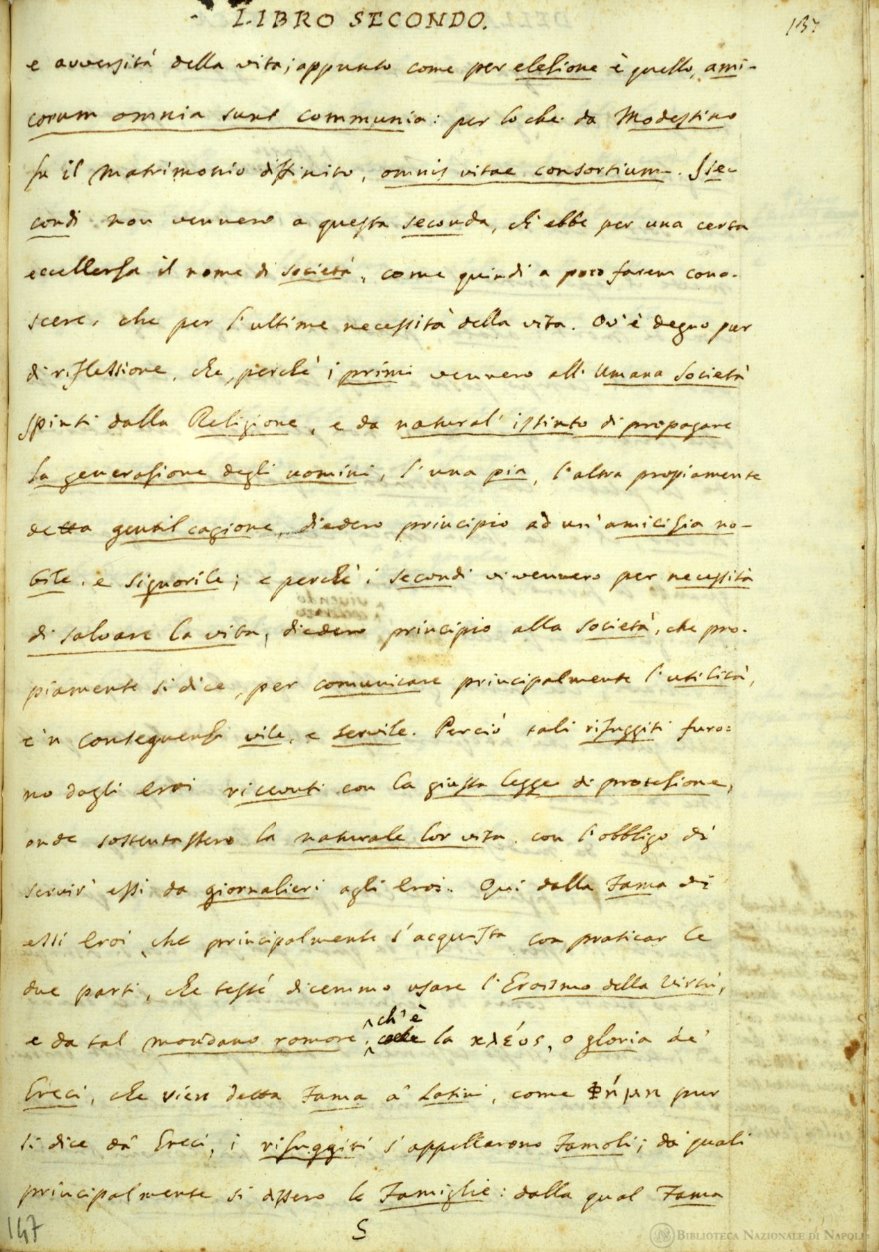 LIBRO SECONDO.
137
e avversità della vita; appunto come per elezione è quello, ami-
corum omnia sunt communia: per lo che da Modestino
fu il matrimonio diffinito, omnis vitae consortium. I se-
condi non vennero a questa seconda, ch'ebbe per una certa
eccellenza il nome di società, come quindi a poco farem cono-
scere, che per l'ultime necessità della vita. Ov'è degno pur
di riflessione, che, perchè i primi vennero all'Umana Società
spinti dalla Religione, e da natural' istinto di propagare
la generazione degli uomini, l'una pia, l'altra propiamente
detta gentil cagione, diedero principio ad un'amicizia no-
bile, e signorile; e perchè i secondi vi vennero per necessità
di salvare la vita, diedero principio alla società, che pro-
piamente si dice, per comunicare principalmente l'utilità,
e 'n conseguenza vile, e servile. Perciò tali rifuggiti furo-
no dagli Eroi ricevuti con la giusta legge di protezione,
onde sostentassero la naturale lor vita con l'obbligo di
servir' essi da giornalieri agli Eroi. Qui dalla Fama di
essi Eroi, che principalmente s'acquista con praticar le
due parti, che testè dicemmo usare l'Eroismo della Virtù,
e da tal mondano romore, ch'è la κλέος, o gloria de'
Greci, che vien detta Fama a' Latini, come Φήμη pur
si dice da' Greci, i rifuggiti s'appellarono Famoli; da' quali
principalmente si dissero le Famiglie: dalla qual Fama
147
S
BIBLIOTECA NAZIONALE DI NAPOLI